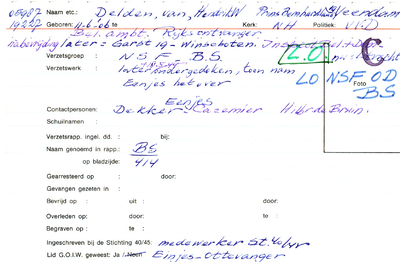 05987 Naam etc.: Delden, van, Hendrik W Prins Bernhardlaan Veendam
19222 Geboren: 11-6-'06 te Kerk: NH Politiek: VVD
Bel. ambt. Rijksontvanger
later = Garst 19 - Winschoten.
L.O.
C
Verzetsgroep : NSF - B.S.
Verzetswerk : Inter ondergedoken, toen nam
Eenjes het over
LO NSF OD
Foto
BS
Eenjes
Contactpersonen: Dekker - Cazemier Hilbr de Bruin.
Schuilnamen :
Verzetsrapp. ingel. dd. : bij:
Naam genoemd in rapp.: BS
op bladzijde: 414
Gearresteerd op : door:
Gevangen gezeten in :
Bevrijd op : uit : door:
Overleden op: door: te :
Begraven op : te :
Ingeschreven bij de Stichting 40/45: medewerker St. 40/45
Lid G.O.I.W. geweest: Ja / Neen Einjes - Ottevanger